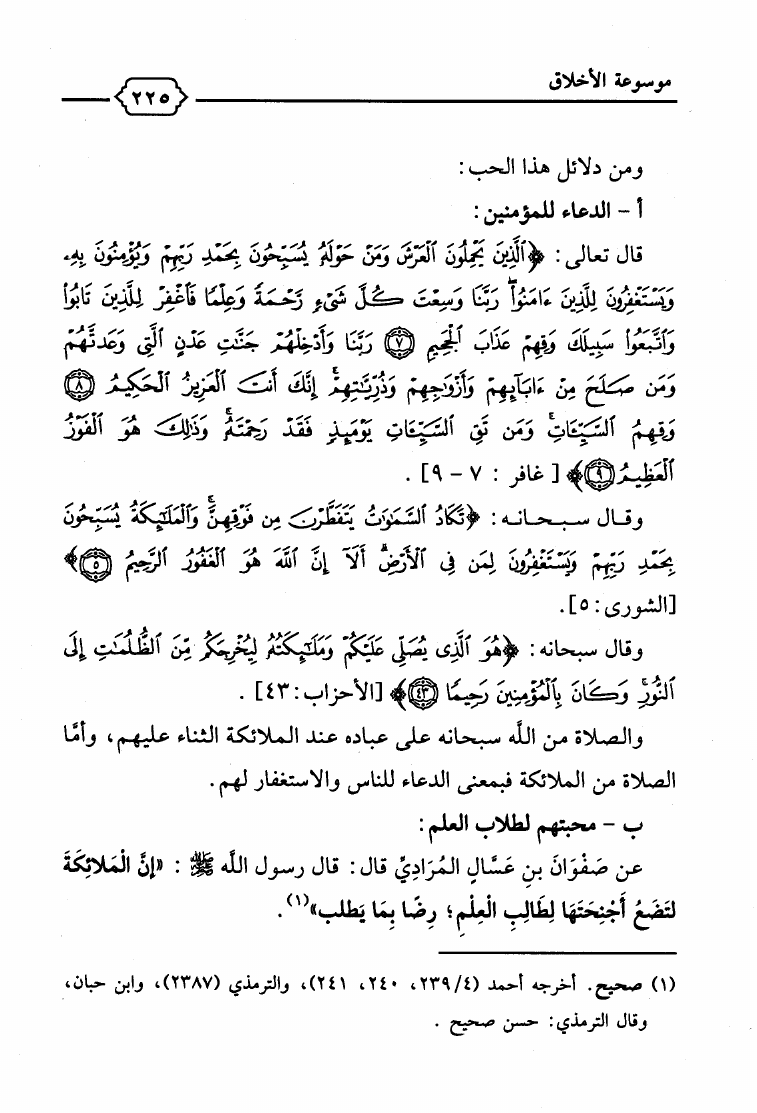 موسوعة الأخلاق
٢٢٥
ومن دلائل هذا الحب:
أ - الدعاء للمؤمنين:
قال تعالى: ﴿ٱلَّذِينَ يَحْمِلُونَ ٱلْعَرْشَ وَمَنْ حَوْلَهُۥ يُسَبِّحُونَ بِحَمْدِ رَبِّهِمْ وَيُؤْمِنُونَ بِهِۦ
وَيَسْتَغْفِرُونَ لِلَّذِينَ ءَامَنُوا۟ رَبَّنَا وَسِعْتَ كُلَّ شَىْءٍ رَّحْمَةً وَعِلْمًا فَٱغْفِرْ لِلَّذِينَ تَابُوا۟
وَٱتَّبَعُوا۟ سَبِيلَكَ وَقِهِمْ عَذَابَ ٱلْجَحِيمِ ٧ رَبَّنَا وَأَدْخِلْهُمْ جَنَّٰتِ عَدْنٍ ٱلَّتِى وَعَدتَّهُمْ
وَمَن صَلَحَ مِنْ ءَابَآئِهِمْ وَأَزْوَٰجِهِمْ وَذُرِّيَّٰتِهِمْ ۚ إِنَّكَ أَنتَ ٱلْعَزِيزُ ٱلْحَكِيمُ ٨
وَقِهِمُ ٱلسَّيِّـَٔاتِ ۚ وَمَن تَقِ ٱلسَّيِّـَٔاتِ يَوْمَئِذٍ فَقَدْ رَحِمْتَهُۥ ۚ وَذَٰلِكَ هُوَ ٱلْفَوْزُ
ٱلْعَظِيمُ ٩﴾ [غافر : ٧ - ٩] .
وقال سبحانه: ﴿تَكَادُ ٱلسَّمَٰوَٰتُ يَتَفَطَّرْنَ مِن فَوْقِهِنَّ ۚ وَٱلْمَلَٰٓئِكَةُ يُسَبِّحُونَ
بِحَمْدِ رَبِّهِمْ وَيَسْتَغْفِرُونَ لِمَن فِى ٱلْأَرْضِ ۗ أَلَآ إِنَّ ٱللَّهَ هُوَ ٱلْغَفُورُ ٱلرَّحِيمُ ٥﴾
[الشورى: ٥].
وقال سبحانه: ﴿هُوَ ٱلَّذِى يُصَلِّى عَلَيْكُمْ وَمَلَٰٓئِكَتُهُۥ لِيُخْرِجَكُم مِّنَ ٱلظُّلُمَٰتِ إِلَى
ٱلنُّورِ ۚ وَكَانَ بِٱلْمُؤْمِنِينَ رَحِيمًا ٤٣﴾ [الأحزاب: ٤٣] .
والصلاة من اللَّه سبحانه على عباده عند الملائكة الثناء عليهم، وأمَّا
الصلاة من الملائكة فبمعنى الدعاء للناس والاستغفار لهم.
ب - محبتهم لطلاب العلم:
عن صَفْوَانَ بنِ عَسَّالٍ المُرَادِيِّ قال: قال رسول اللَّه ﷺ : «إنَّ الْمَلائِكَةَ
لتَضَعُ أَجْنِحَتَهَا لِطَالِبِ الْعِلْمِ؛ رِضًا بِمَا يَطلب»(١).
(١) صحيح. أخرجه أحمد (٤/ ٢٣٩، ٢٤٠، ٢٤١)، والترمذي (٢٣٨٧)، وابن حبان،
وقال الترمذي: حسن صحيح .